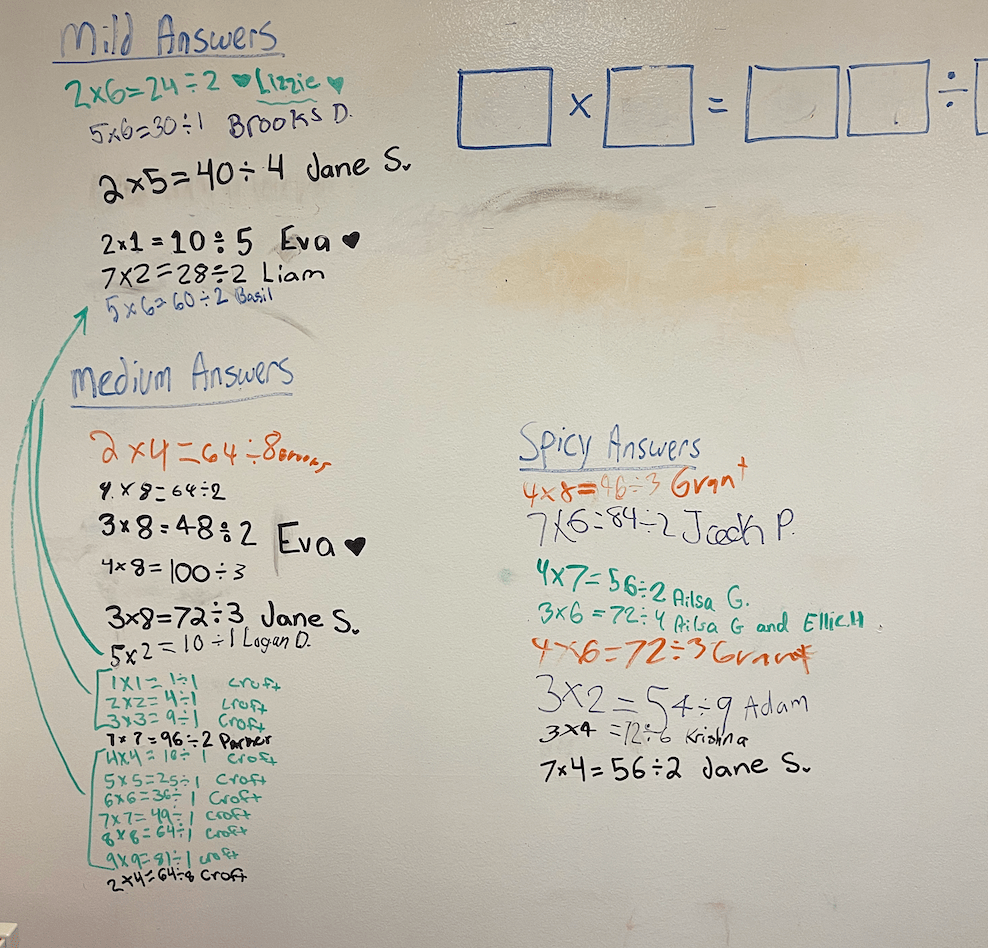 Mild Answers
2x6=24÷2 ♥ Lizzie ♥
5x6=30÷1 Brooks D.
2x5=40÷4 Jane S.
2x1=10÷5 Eva ♥
7x2=28÷2 Liam
5x6=60÷2 Basil
x = ÷
Medium Answers
2x4=64÷8 Brooks
4x8=64÷2
3x8=48÷2 Eva ♥
4x8=100÷3
3x8=72÷3 Jane S.
5x2=10÷1 Logan D.
1x1=1÷1 Croft
2x2=4÷1 Croft
3x3=9÷1 Croft
7x7=96÷2 Parker
4x4=16÷1 Croft
5x5=25÷1 Croft
6x6=36÷1 Croft
7x7=49÷1 Croft
8x8=64÷1 Croft
9x9=81÷1 Croft
2x4=64÷8 Croft
Spicy Answers
4x8=96÷3 Grant
7x6=84÷2 P.
4x7=56÷2 Ailsa G.
3x6=72÷4 Ailsa G and Ellie H.
4x6=72÷3 Grant
3x2=54÷9 Adam
3x4=72÷6 Krishna
7x4=56÷2 Jane S.